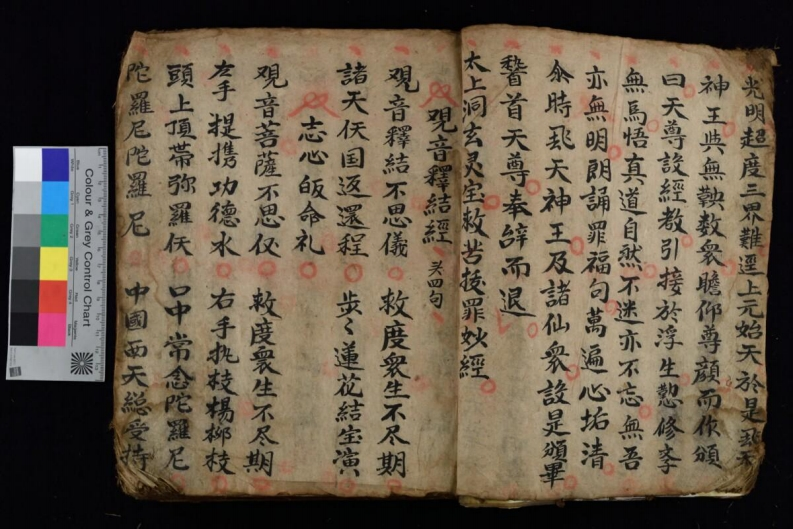 光明超度三界難逕上元始天於是飛天
神王與無鞅数衆瞻仰尊顔而作頌
曰天尊設經教引接於浮生懃修字
無爲悟真道自然不迷亦不忘無吾
亦無明朗誦罪福句萬遍心垢清
尒時飛天神王及諸仙衆設是頌畢
稽首天尊奉辞而退
太上洞玄灵宝救苦拔罪妙經
观音釋結經 关四句
观音釋結不思儀 救度衆生不尽期
諸天仸国返還程 步〻蓮花結宝演
志心皈命礼
观音菩薩不思仪 救度衆生不尽期
左手提携功德水 右手执枝楊柳枝
頭上頂帯弥羅仸 口中常念陀羅尼
陀羅尼陀羅尼 中國西天總受持
Colour & Grey Control Chart